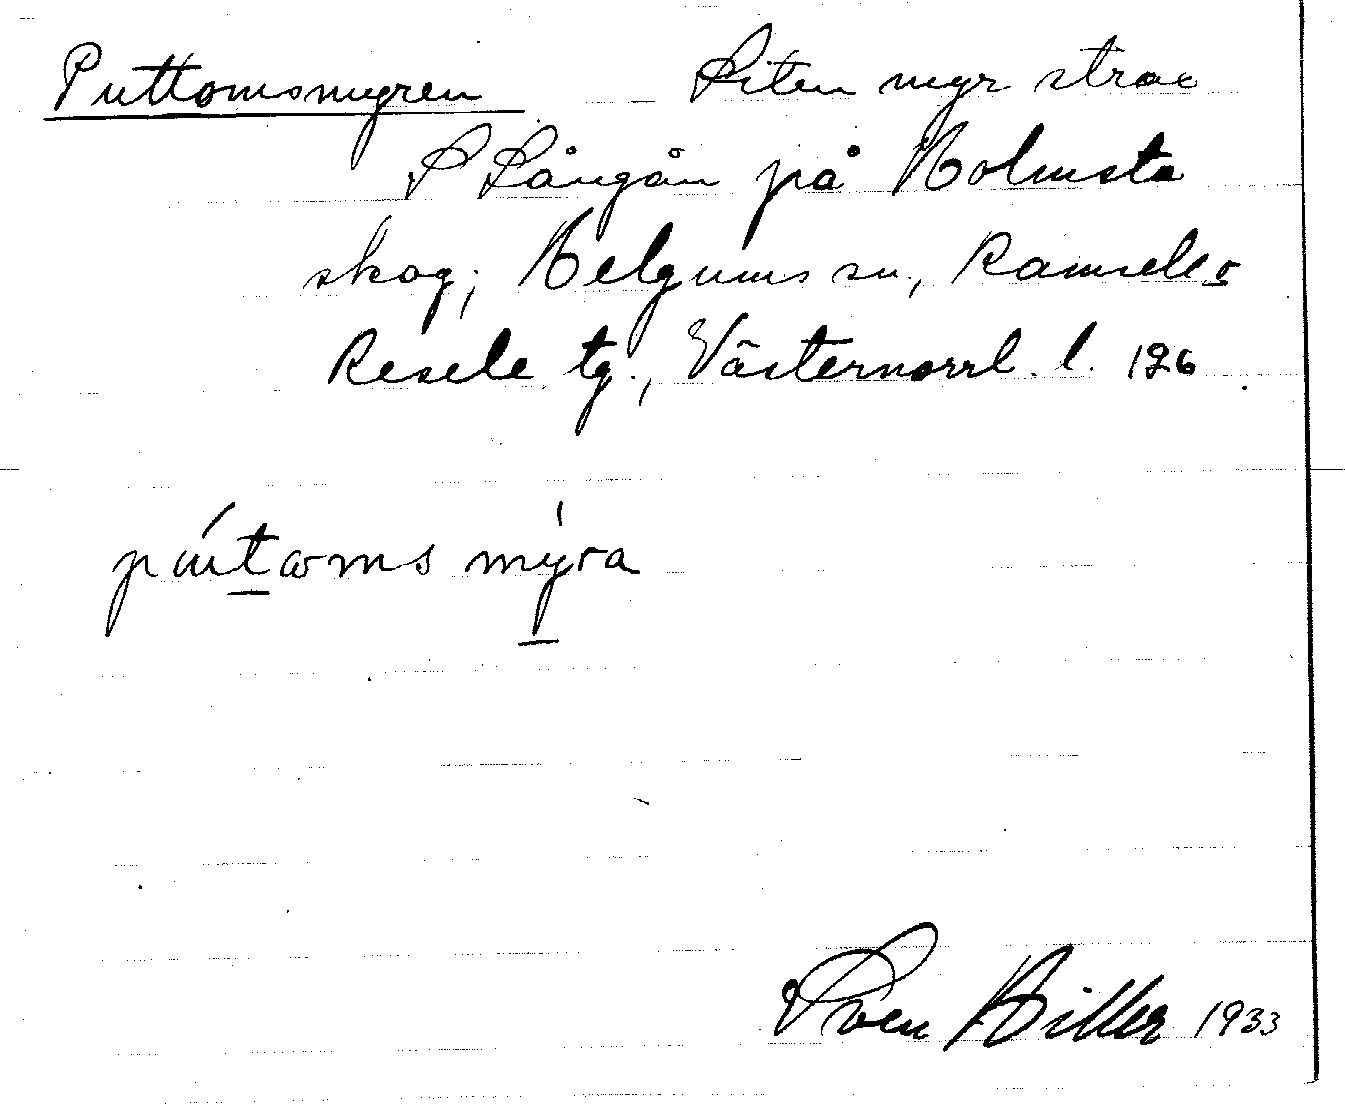 Puttomsmyren Liten myr strax
S Långån på Holmsta
skog, Helgums sn, Ramsele o
Resele tg., Västernorrl. l. 126
pútoms mýra
Sven Hiller 1933